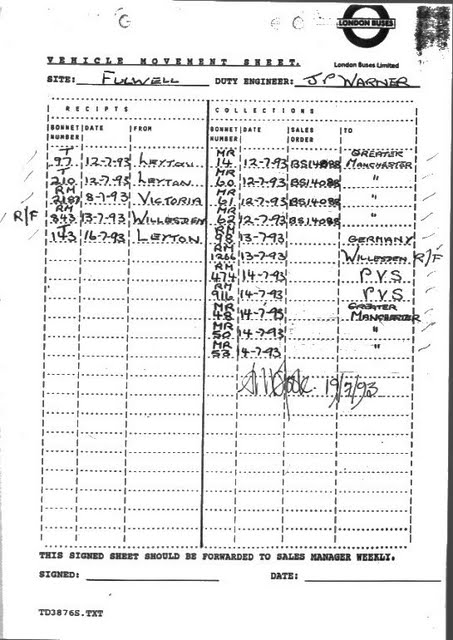 LONDON BUSES
London Buses Limited
VEHICLE MOVEMENT SHEET.
SITE: FULWELL DUTY ENGINEER: J P WARNER
RECEIPTS COLLECTIONS
BONNET NUMBER DATE FROM BONNET NUMBER DATE SALES ORDER TO
T 97 12-7-93 LEYTON MR 14 12-7-93 BS14088 GREATER MANCHESTER
T 210 12-7-93 LEYTON MR 60 12-7-93 BS14088 "
RM 2187 8-7-93 VICTORIA MR 61 12-7-93 BS14088 "
R/F RM 843 13-7-93 WILLESDEN MR 62 12-7-93 BS14088 "
T 143 16-7-93 LEYTON RM 98 13-7-93 GERMANY
RM 1266 13-7-93 WILLESDEN R/F
RM 474 14-7-93 P.V.S.
RM 916 14-7-93 P.V.S.
MR 48 14-7-93 GREATER MANCHESTER
MR 50 14-7-93 "
MR 53 14-7-93 "
19/7/93
THIS SIGNED SHEET SHOULD BE FORWARDED TO SALES MANAGER WEEKLY.
SIGNED: DATE:
TD3876S.TXT